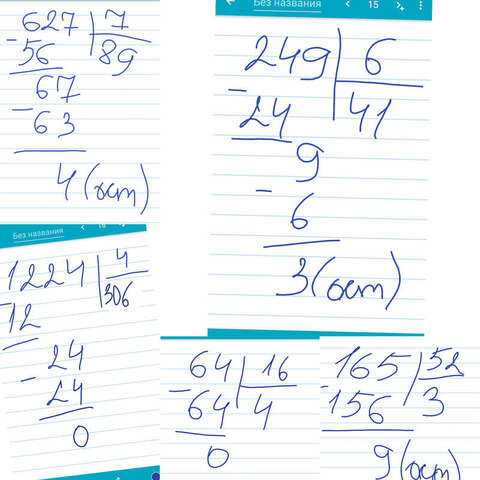 627 | 7
- 56 | 89
67
- 63
4 (ост)
Без названия
15
249 | 6
- 24 | 41
9
- 6
3 (ост)
Без названия
1224 | 4
- 12 | 306
24
- 24
0
64 | 16
- 64 | 4
0
165 | 52
- 156 | 3
9 (ост)